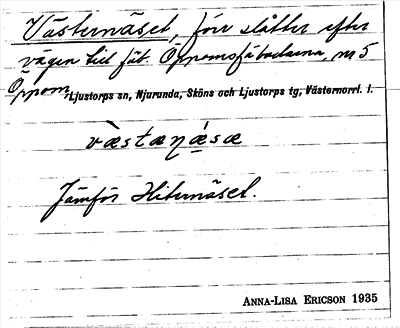 Västernäset, förr slåtter efter
vägen till fäb. Öppomsfäbodarna, nr 5
Öppom, Ljustorps sn, Njurunda, Sköns och Ljustorps tg, Västernorrl. l.
væ̀stæṇǽ̨sæ
Jämför Hiternäset.
ANNA-LISA ERICSON 1935